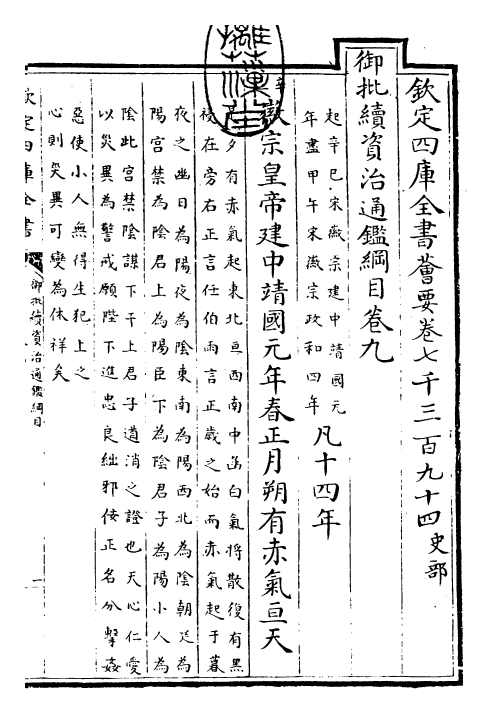 欽定四庫全書薈要卷七千三百九十四史部
御批續資治通鑑綱目卷九
起辛巳宋徽宗建中靖國元
年盡甲午宋徽宗政和四年
凡十四年
辛
徽宗皇帝建中靖國元年春正月朔有赤氣亘天
夕有赤氣起東北亘西南中函白氣將散復有黑
祲在旁右正言任伯雨言正歲之始而赤氣起于暮
夜之幽日為陽夜為陰東南為陽西北為陰朝廷為
陽宮禁為陰君上為陽臣下為陰君子為陽小人為
陰此宮禁陰謀下干上君子道消之證也天心仁愛
以災異為警戒願陛下進忠良絀邪佞正名分擊姦
惡使小人無得生犯上之
心則災異可變為休祥矣
欽定四庫全書
御批續資治通鑑綱目
一